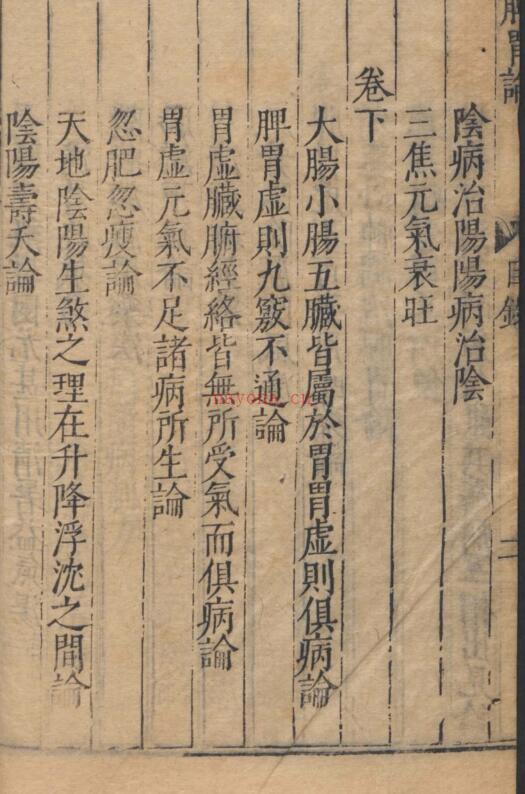 脾胃論
目錄
二
陰病治陽陽病治陰
三焦元氣衰旺
卷下
大腸小腸五臟皆屬於胃胃虛則俱病論
脾胃虛則九竅不通論
胃虛臟腑經絡皆無所受氣而俱病論
胃虛元氣不足諸病所生論
忽肥忽瘦論
天地陰陽生煞之理在升降浮沈之間論
陰陽壽夭論